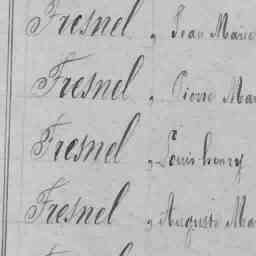 Fresnel, Jean Marie
Fresnel, Pierre Ma
Fresnel, Louis henry
Fresnel, Auguste Ma